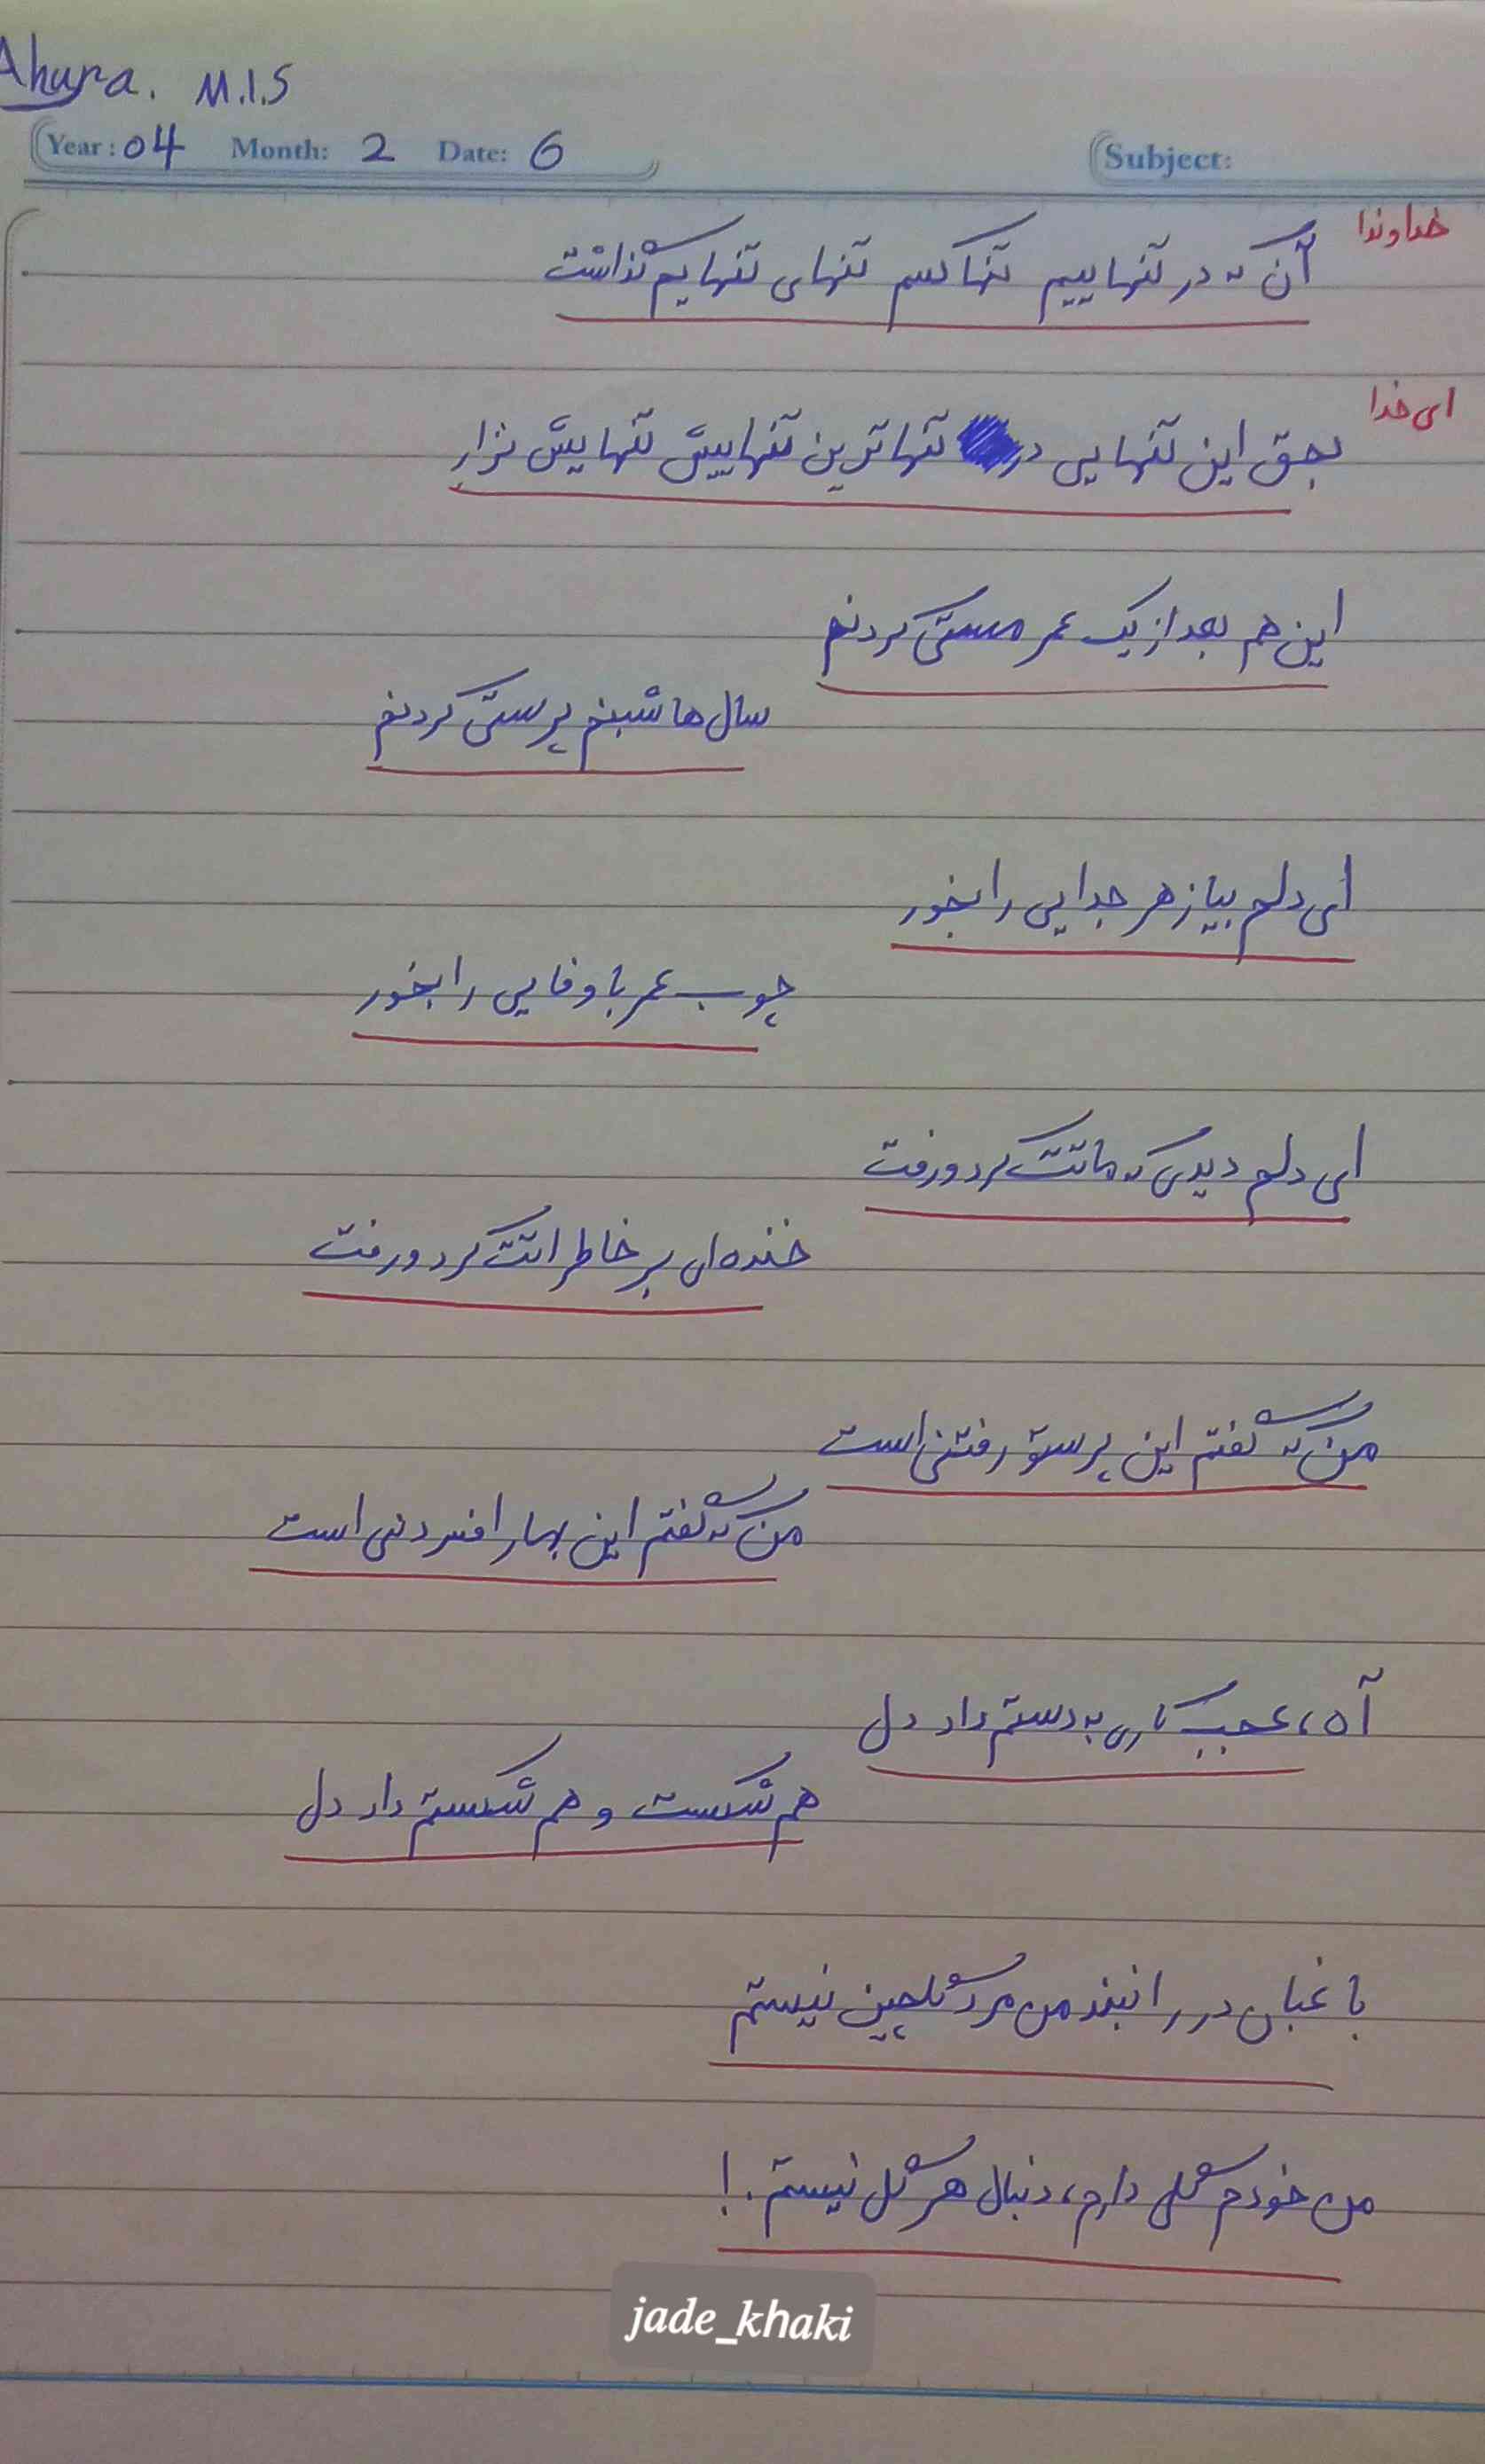 Ahura. M.I.S
Year: 04 Month: 2 Date: 6 Subject:
خداوندا
آن که در تنهاییم تنها کسم تنهای تنهایم گذاشت
ای خدا
بحق این تنهایی در تنهاترین تنهاییش تنهایش نزار
این هم بعد از یک عمر مستی کردنم
سال ها شبنم پرستی کردنم
ای دلم بیا زهر جدایی را بخور
چوب عمر با وفایی را بخور
ای دلم دیدی که ماتت کرد و رفت
خنده ای بر خاطراتت کرد و رفت
من که گفتم این پرستو رفتنی است
من که گفتم این بهار افسردنی است
آه، عجب کاری به دستم داد دل
هم شکست و هم شکستم داد دل
باغبان در را نبند من مرد گلچین نیستم
من خودم گلی دارم، دنبال هر گل نیستم.!
jade_khaki